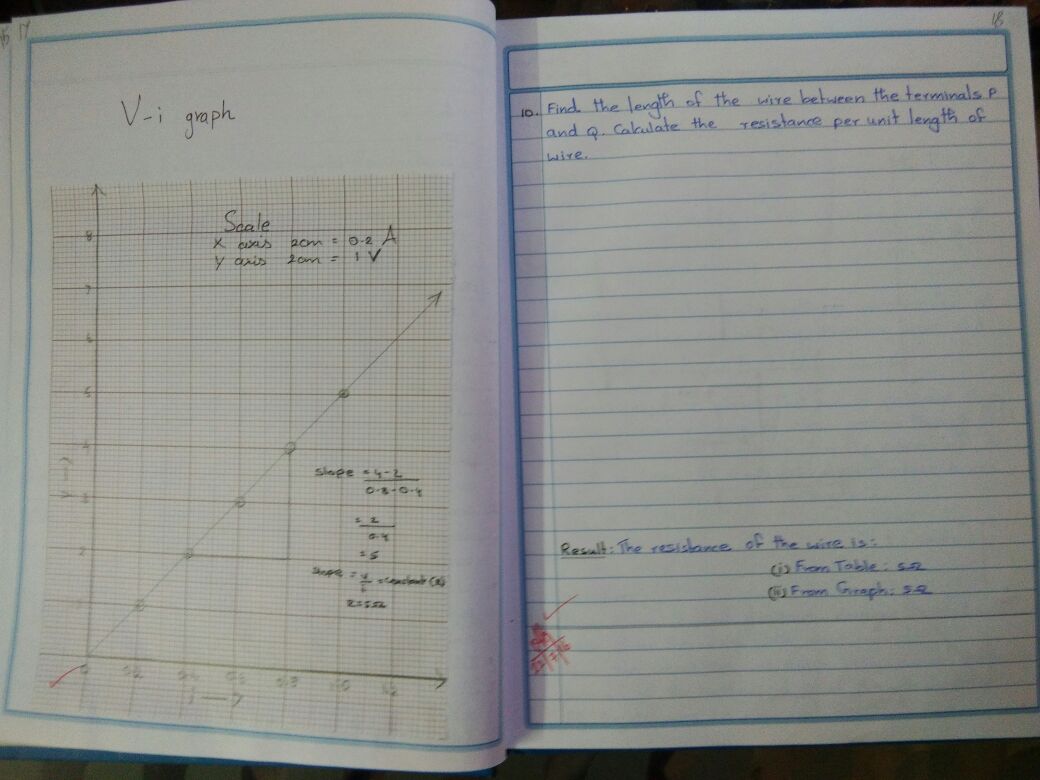 17
V-i graph
Scale
X axis 2cm = 0.2 A
Y axis 2cm = 1 V
8
7
6
5
4
3
2
slope = 4-2
0.8-0.4
= 2
0.4
= 5
slope = V
i = constant (R)
R = 5Ω
0 0.2 0.4 0.6 0.8 1.0 1.2
i
18
10. Find the length of the wire between the terminals P
and Q. Calculate the resistance per unit length of
wire.
Result: The resistance of the wire is:
(i) From Table: 5Ω
(ii) From Graph: 5Ω